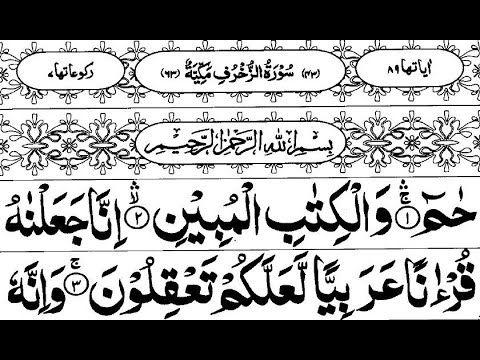 اٰیاتها ٨٩ (٤٣) سُوْرَةُ الزُّخْرُفِ مَكِّيَّةٌ (٦٣) رکوعاتها ٧
بِسْمِ اللّٰهِ الرَّحْمٰنِ الرَّحِيْمِ
حٰمٓ ۚ ١ وَالْكِتٰبِ الْمُبِيْنِ ٢ اِنَّا جَعَلْنٰهُ
قُرْءٰنًا عَرَبِيًّا لَّعَلَّكُمْ تَعْقِلُوْنَ ۚ ٣ وَاِنَّهٗ